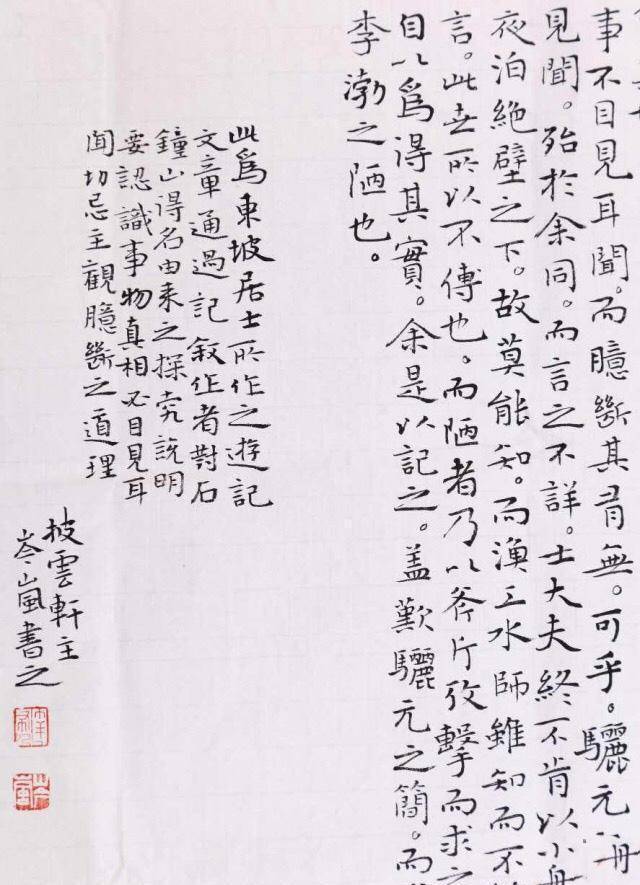 事不目見耳聞。而臆斷其有無。可乎。驪元
見聞。殆於余同。而言之不詳。士大夫終不肯以小舟
夜泊絶壁之下。故莫能知。而漁工水師雖知而不
言。此世所以不傳也。而陋者乃以斧斤攷擊而求之
自以爲得其實。余是以記之。盖歎驪元之簡。而
李渤之陋也。
此爲東坡居士所作之遊記
文章通過記叙作者對石
鐘山得名由来之探究説明
要認識事物真相必目見耳
聞切忌主觀臆斷之道理
披雲軒主
岑嵐書之